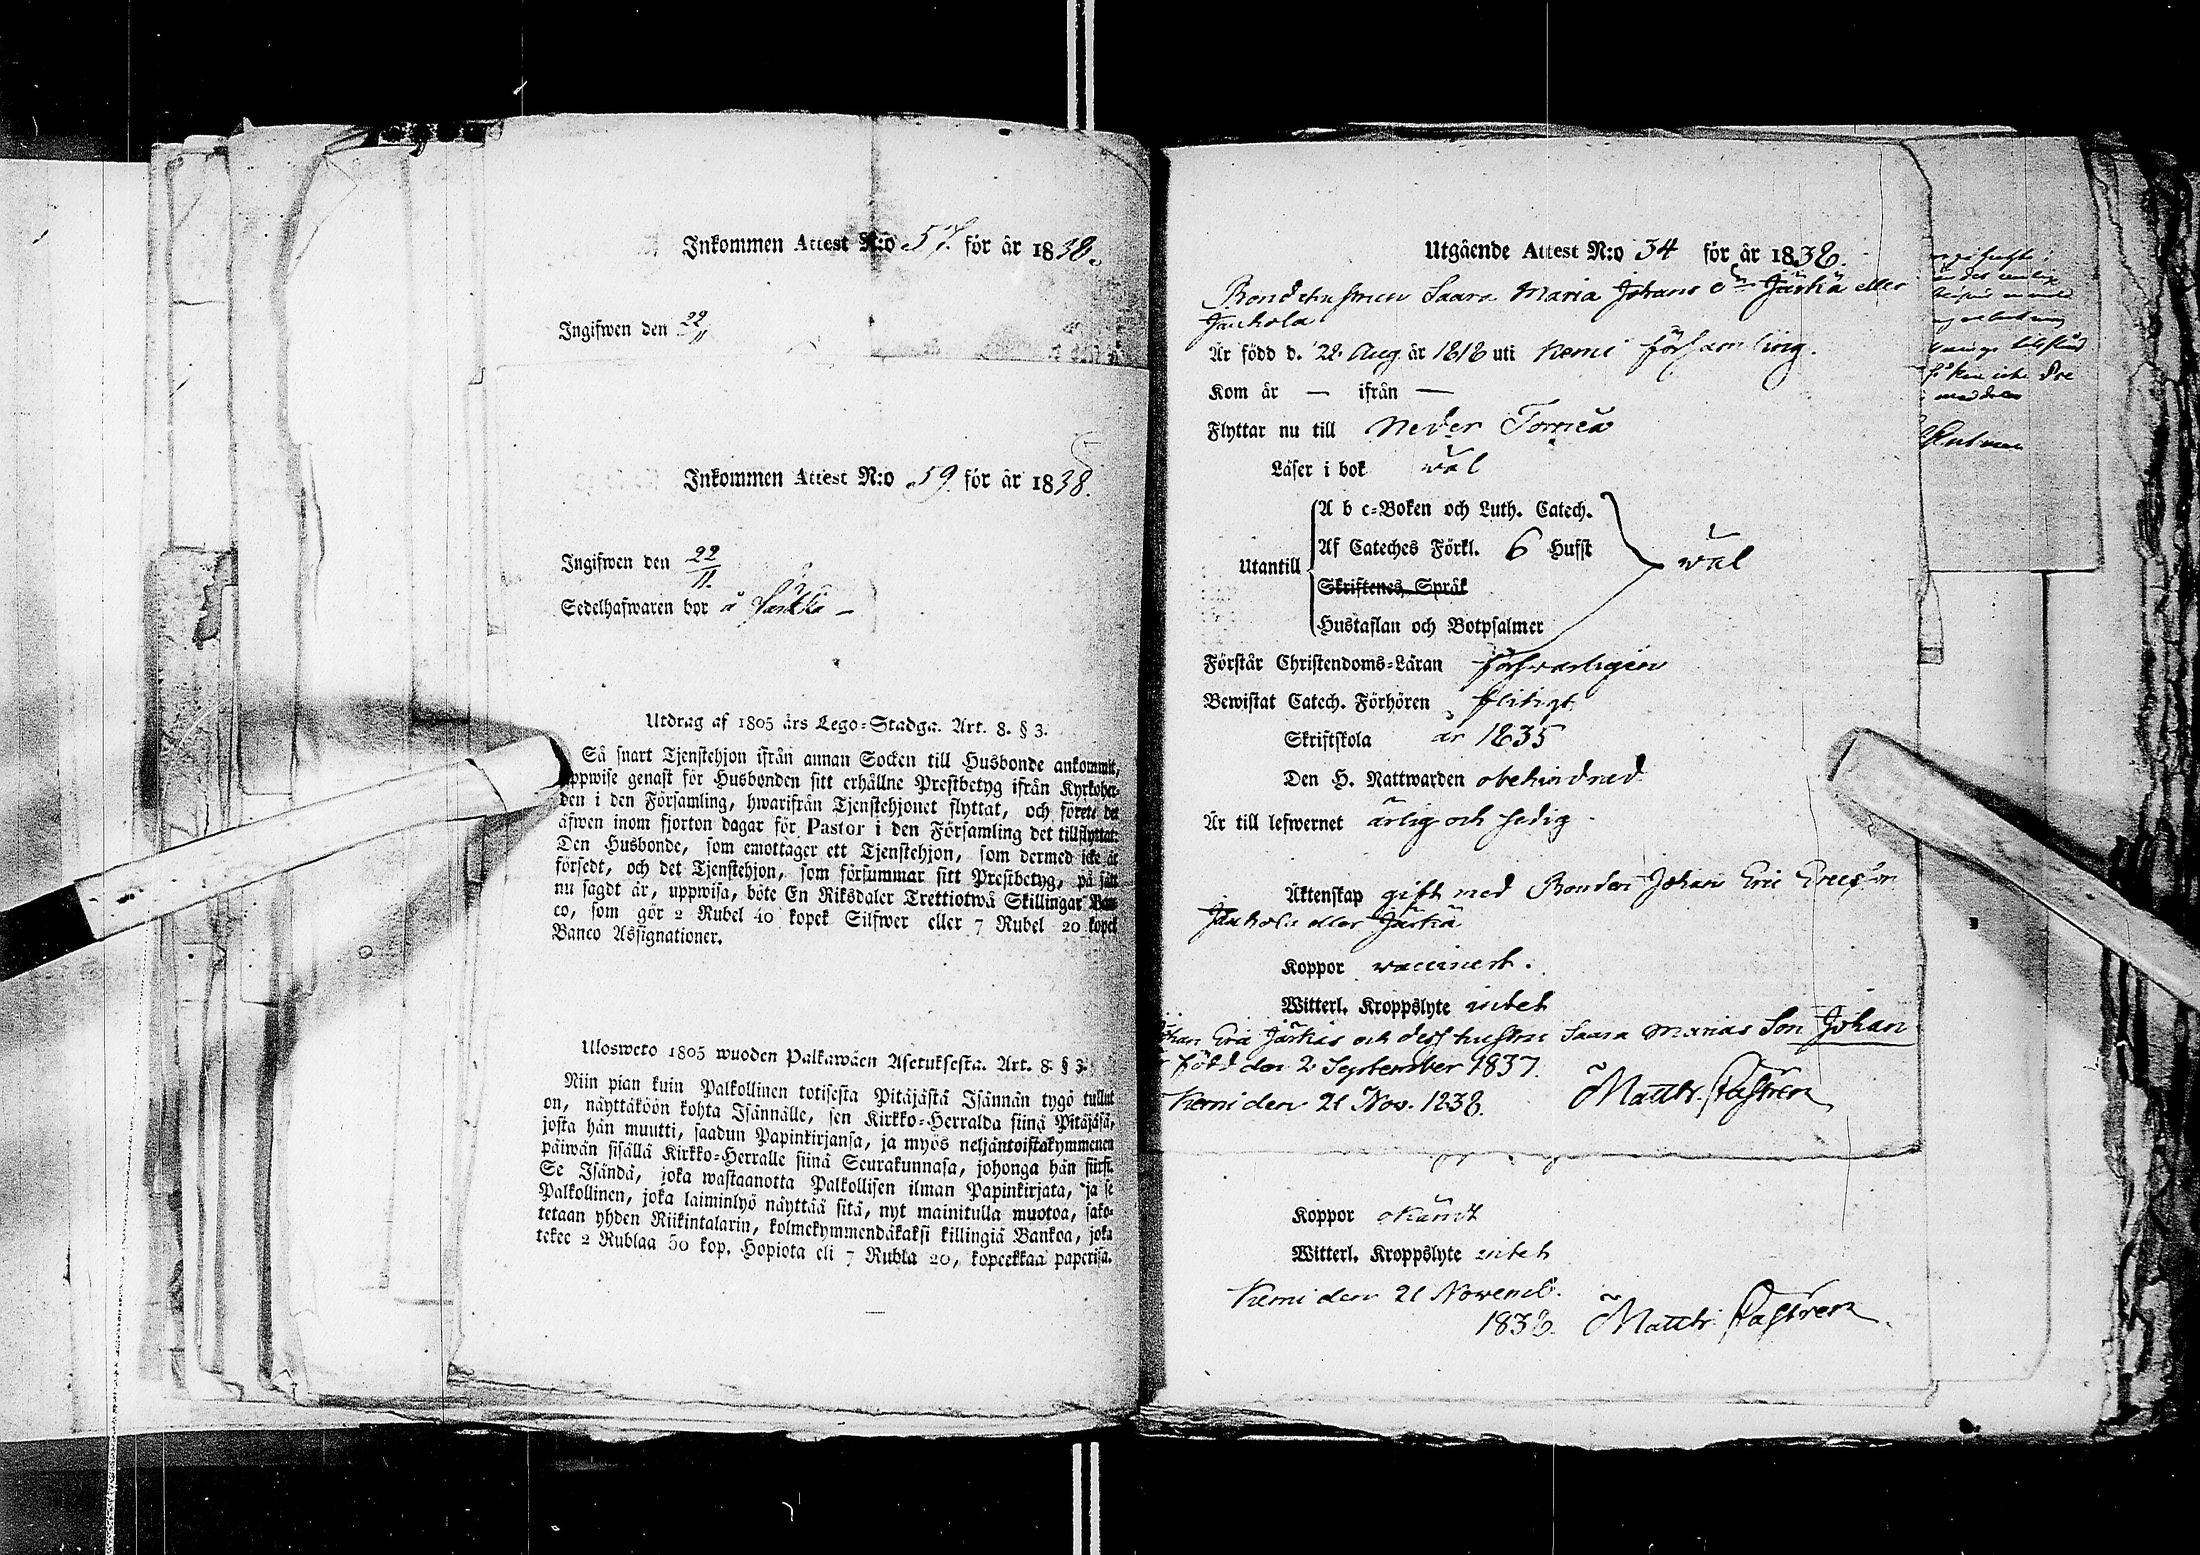 Inkommen Attest N:o 57. för år 1838.
Ingifwen den 22/11
Inkommen Attest N:o 59. för år 1838.
Ingifwen den 22/11.
Sedelhafwaren bor å
Utdrag af 1805 års Lego-Stadga. Art. 8. § 3.
Så snart Tjenstehjon ifrån annan Socken till Husbonde ankommit,
uppwise genast för Husbonden sitt erhållne Prestbetyg ifrån Kyrkoher-
den i den Församling, hwarifrån Tjenstehjonet flyttat, och förete det
äfwen inom fjorton dagar för Pastor i den Församling det tillflyttat.
Den Husbonde, som emottager ett Tjenstehjon, som dermed icke är
försedt, och det Tjenstehjon, som försummar sitt Prestbetyg, på sätt
nu sagdt är, uppwisa, böte En Riksdaler Trettiotwå Skillingar Ban-
co, som gör 2 Rubel 40 kopek Silfwer eller 7 Rubel 20 kopek
Banco Assignationer.
Ulosweto 1805 wuoden Palkawäen Asetuksesta. Art. 8. § 3.
Niin pian kuin Palkollinen toisesta Pitäjästä Isännän tygö tullut
on, näyttäköön kohta Isännälle, sen Kirkko-Herralda siinä Pitäjäsä,
josta hän muutti, saadun Papinkirjansa, ja myös neljäntoistakymmenen
päiwän sisällä Kirkko-Herralle siinä Seurakunnasa, johonga hän siirsi.
Se Isändä, joka wastaanotta Palkollisen ilman Papinkirjata, ja se
Palkollinen, joka laiminlyö näyttää sitä, nyt mainitulla muotoa, sako-
tetaan yhden Riikintalarin, kolmekymmendäkaksi killingiä Bankoa, joka
tekee 2 Rublaa 50 kop. Hopiota eli 7 Rubla 20, kopeekkaa paperisa.
Utgående Attest N:o 34 för år 1838.
Bondehustrun Saara Maria Johans dr Järkä eller
Jaukola
Är född d. 28. Aug år 1818 uti Kemi församling.
Kom år — ifrån —
Flyttar nu till Neder Torneå
Läser i bok väl
Utantill
A b c-Boken och Luth. Catech.
Af Cateches Förkl. 6 Hufst
väl
Skriftenes Språk
Hustaflan och Botpsalmer
Förstår Christendoms-Läran försvarligen
Bewistat Catech. Förhören flitigt
Skriftskola år 1835
Den H. Nattwarden obehindrad
Är till lefwernet ärlig och sedig
Äktenskap gift med Bonden Johan Eric Ericson
Jaukola eller Järkä
Koppor vaccinert.
Witterl. Kroppslyte intet
Johan Eric Järkäs och dess hustru Saara Marias Son Johan
född den 2 September 1837.
Kemi den 21 Nov. 1838. Matth. Castren
Koppor okändt
Witterl. Kroppslyte intet
Kemi den 21 Novemb.
1838. Matth. Castren